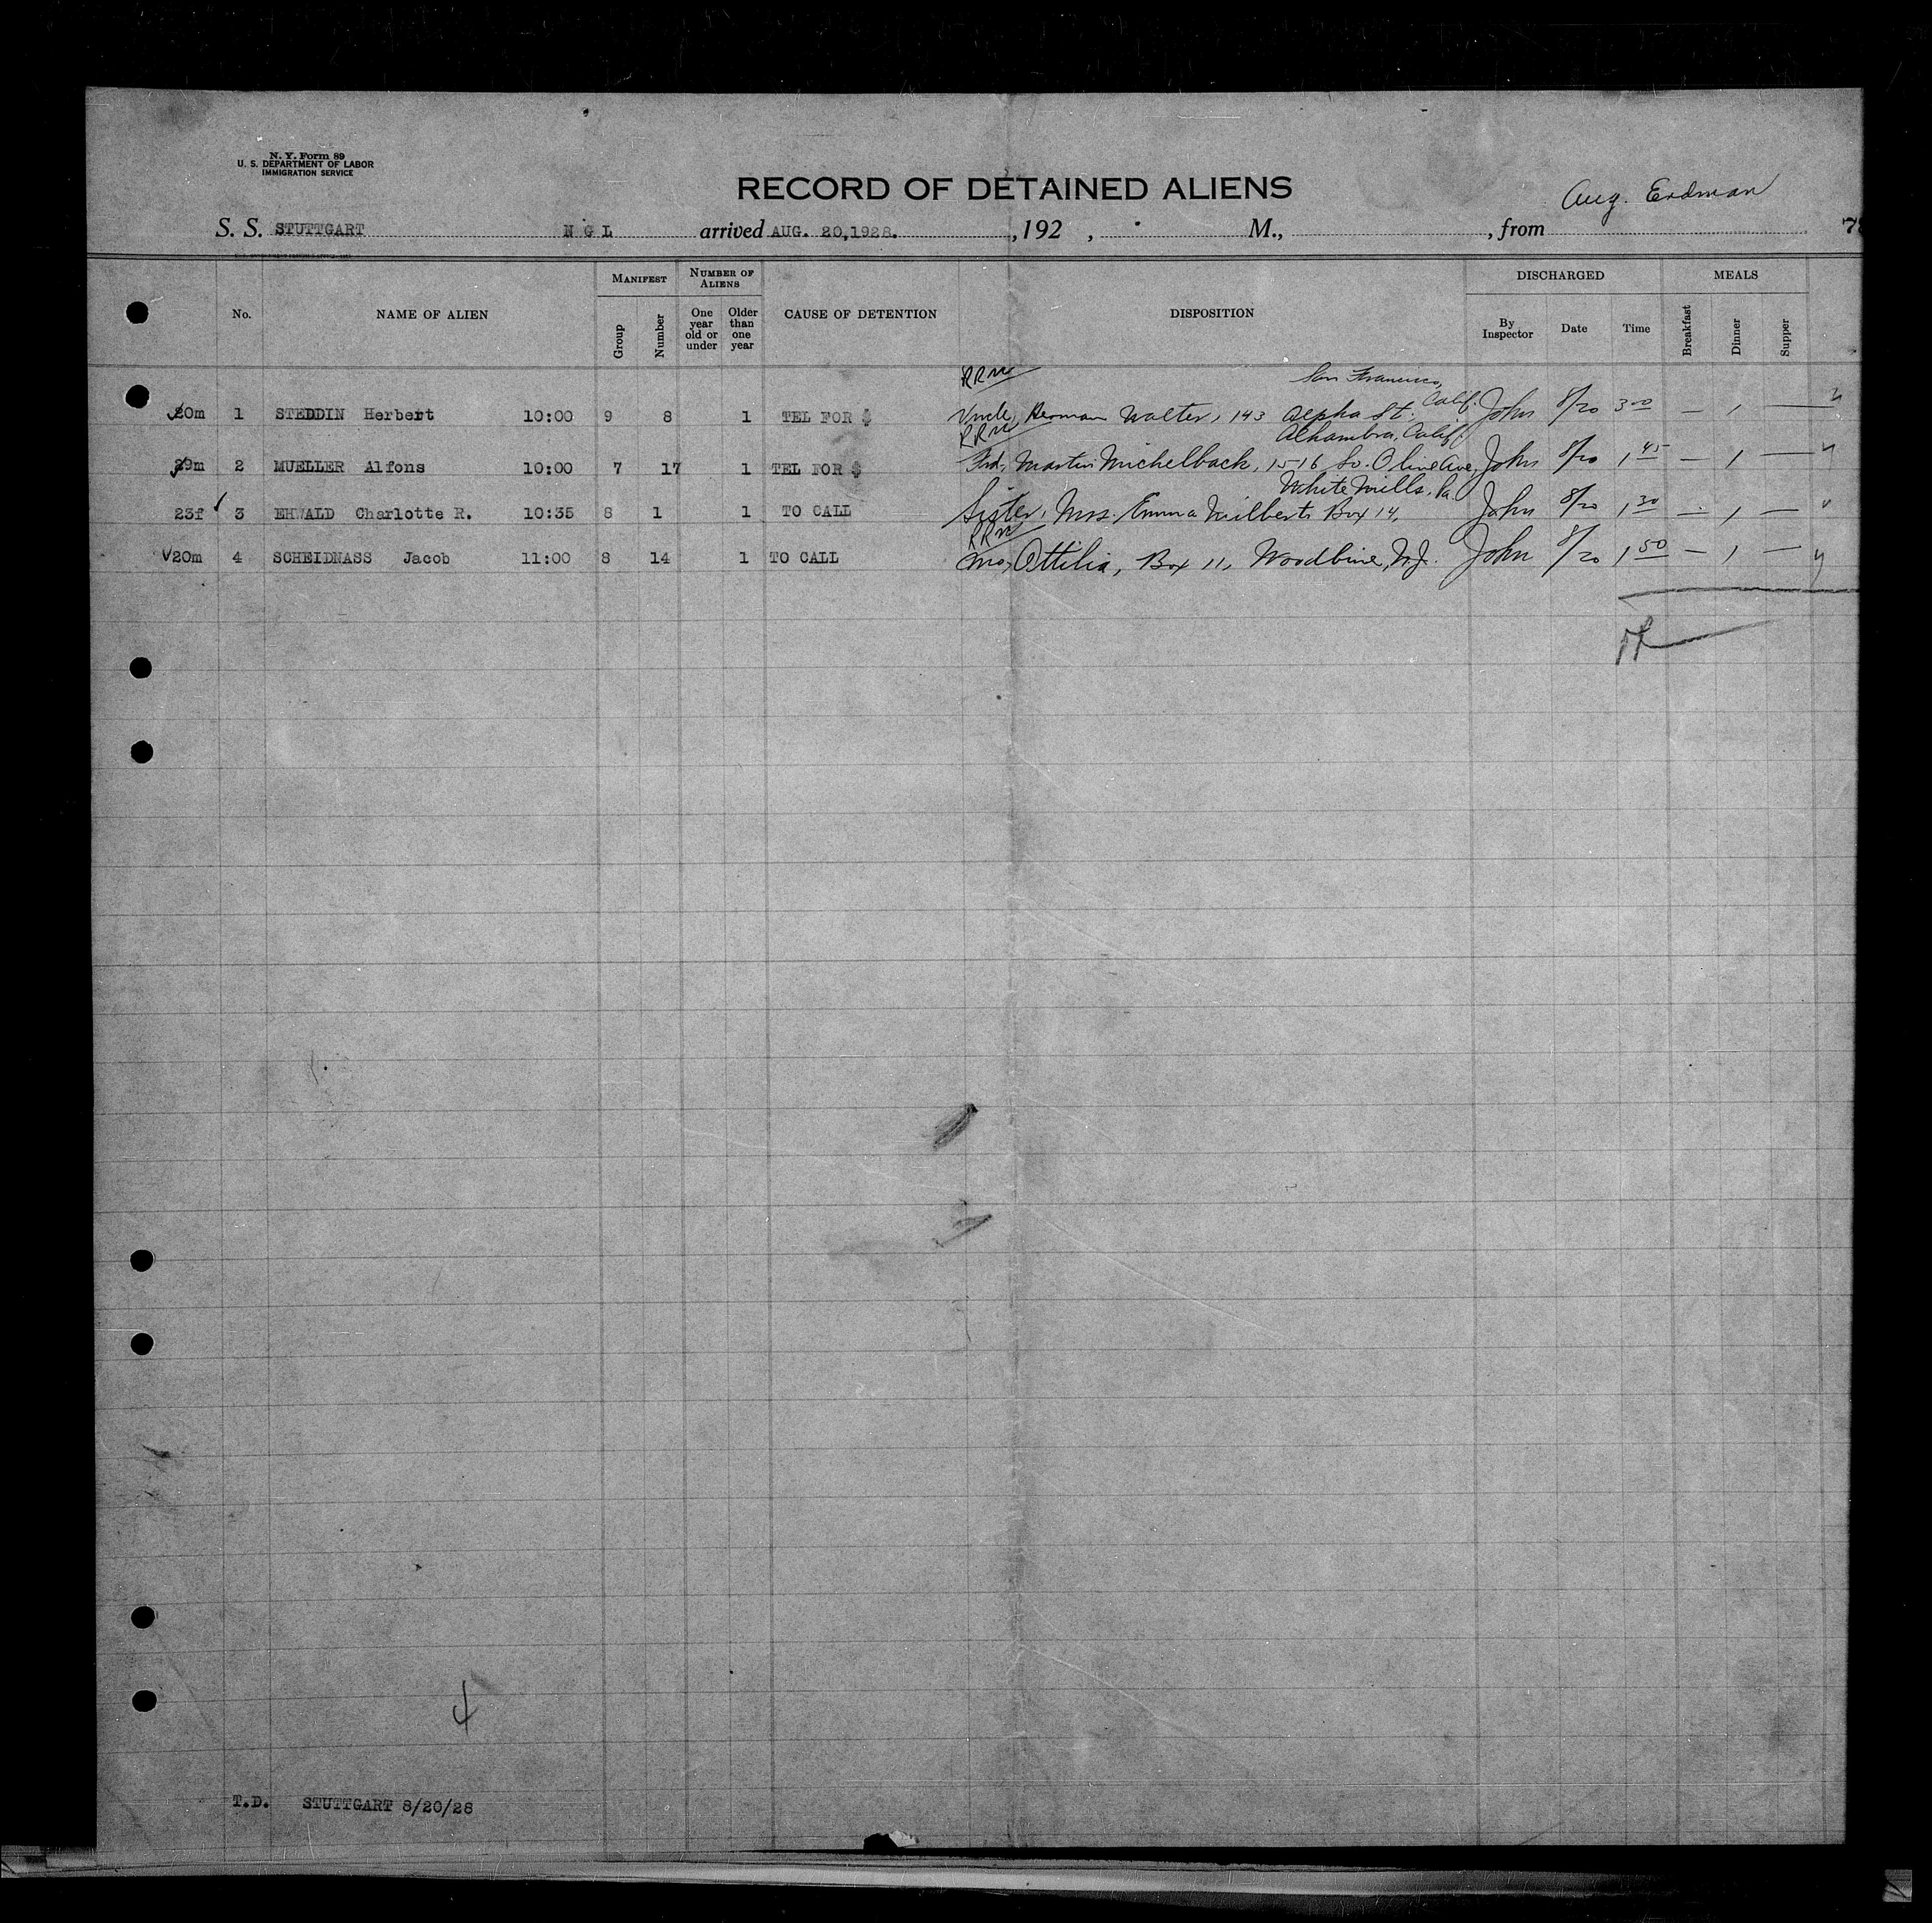 N. Y. Form 89
U. S. DEPARTMENT OF LABOR
IMMIGRATION SERVICE
RECORD OF DETAINED ALIENS
Aug. Erdman
S. S. STUTTGART N G L arrived AUG. 20,1928. , 192 , M., , from 78
No. NAME OF ALIEN MANIFEST Group Number NUMBER OF ALIENS One year old or under Older than one year CAUSE OF DETENTION DISPOSITION DISCHARGED By Inspector Date Time MEALS Breakfast Dinner Supper
RRM San Francisco,
20m 1 STEDDIN Herbert 10:00 9 8 1 TEL FOR $ Uncle, Herman Walter, 143 Alpha St. Calif. John 8/20 3 00 — 1 —
RRM Alhambra, Calif.
29m 2 MUELLER Alfons 10:00 7 17 1 TEL FOR $ Frd, Martin Michelback, 1516 So. Olive Ave, John 8/20 1 45 — 1 —
White Mills, Pa.
23f 3 EHWALD Charlotte R. 10:35 8 1 1 TO CALL Sister, Mrs. Emma Milberts Box 14, John 8/20 1 30 — 1 —
RRM
20m 4 SCHEIDNASS Jacob 11:00 8 14 1 TO CALL Mo, Ottilia, Box 11, Woodbine, N.J. John 8/20 1 50 — 1 —
4
T.D. STUTTGART 8/20/28